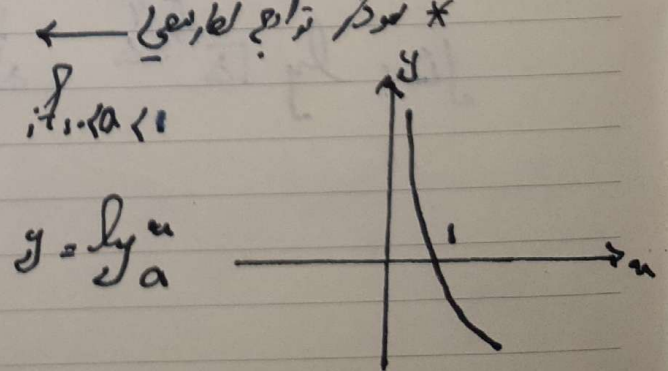 * نمودار توابع لگاریتمی ←
if ۰<a<۱
y = log_a^x
y
۱
x